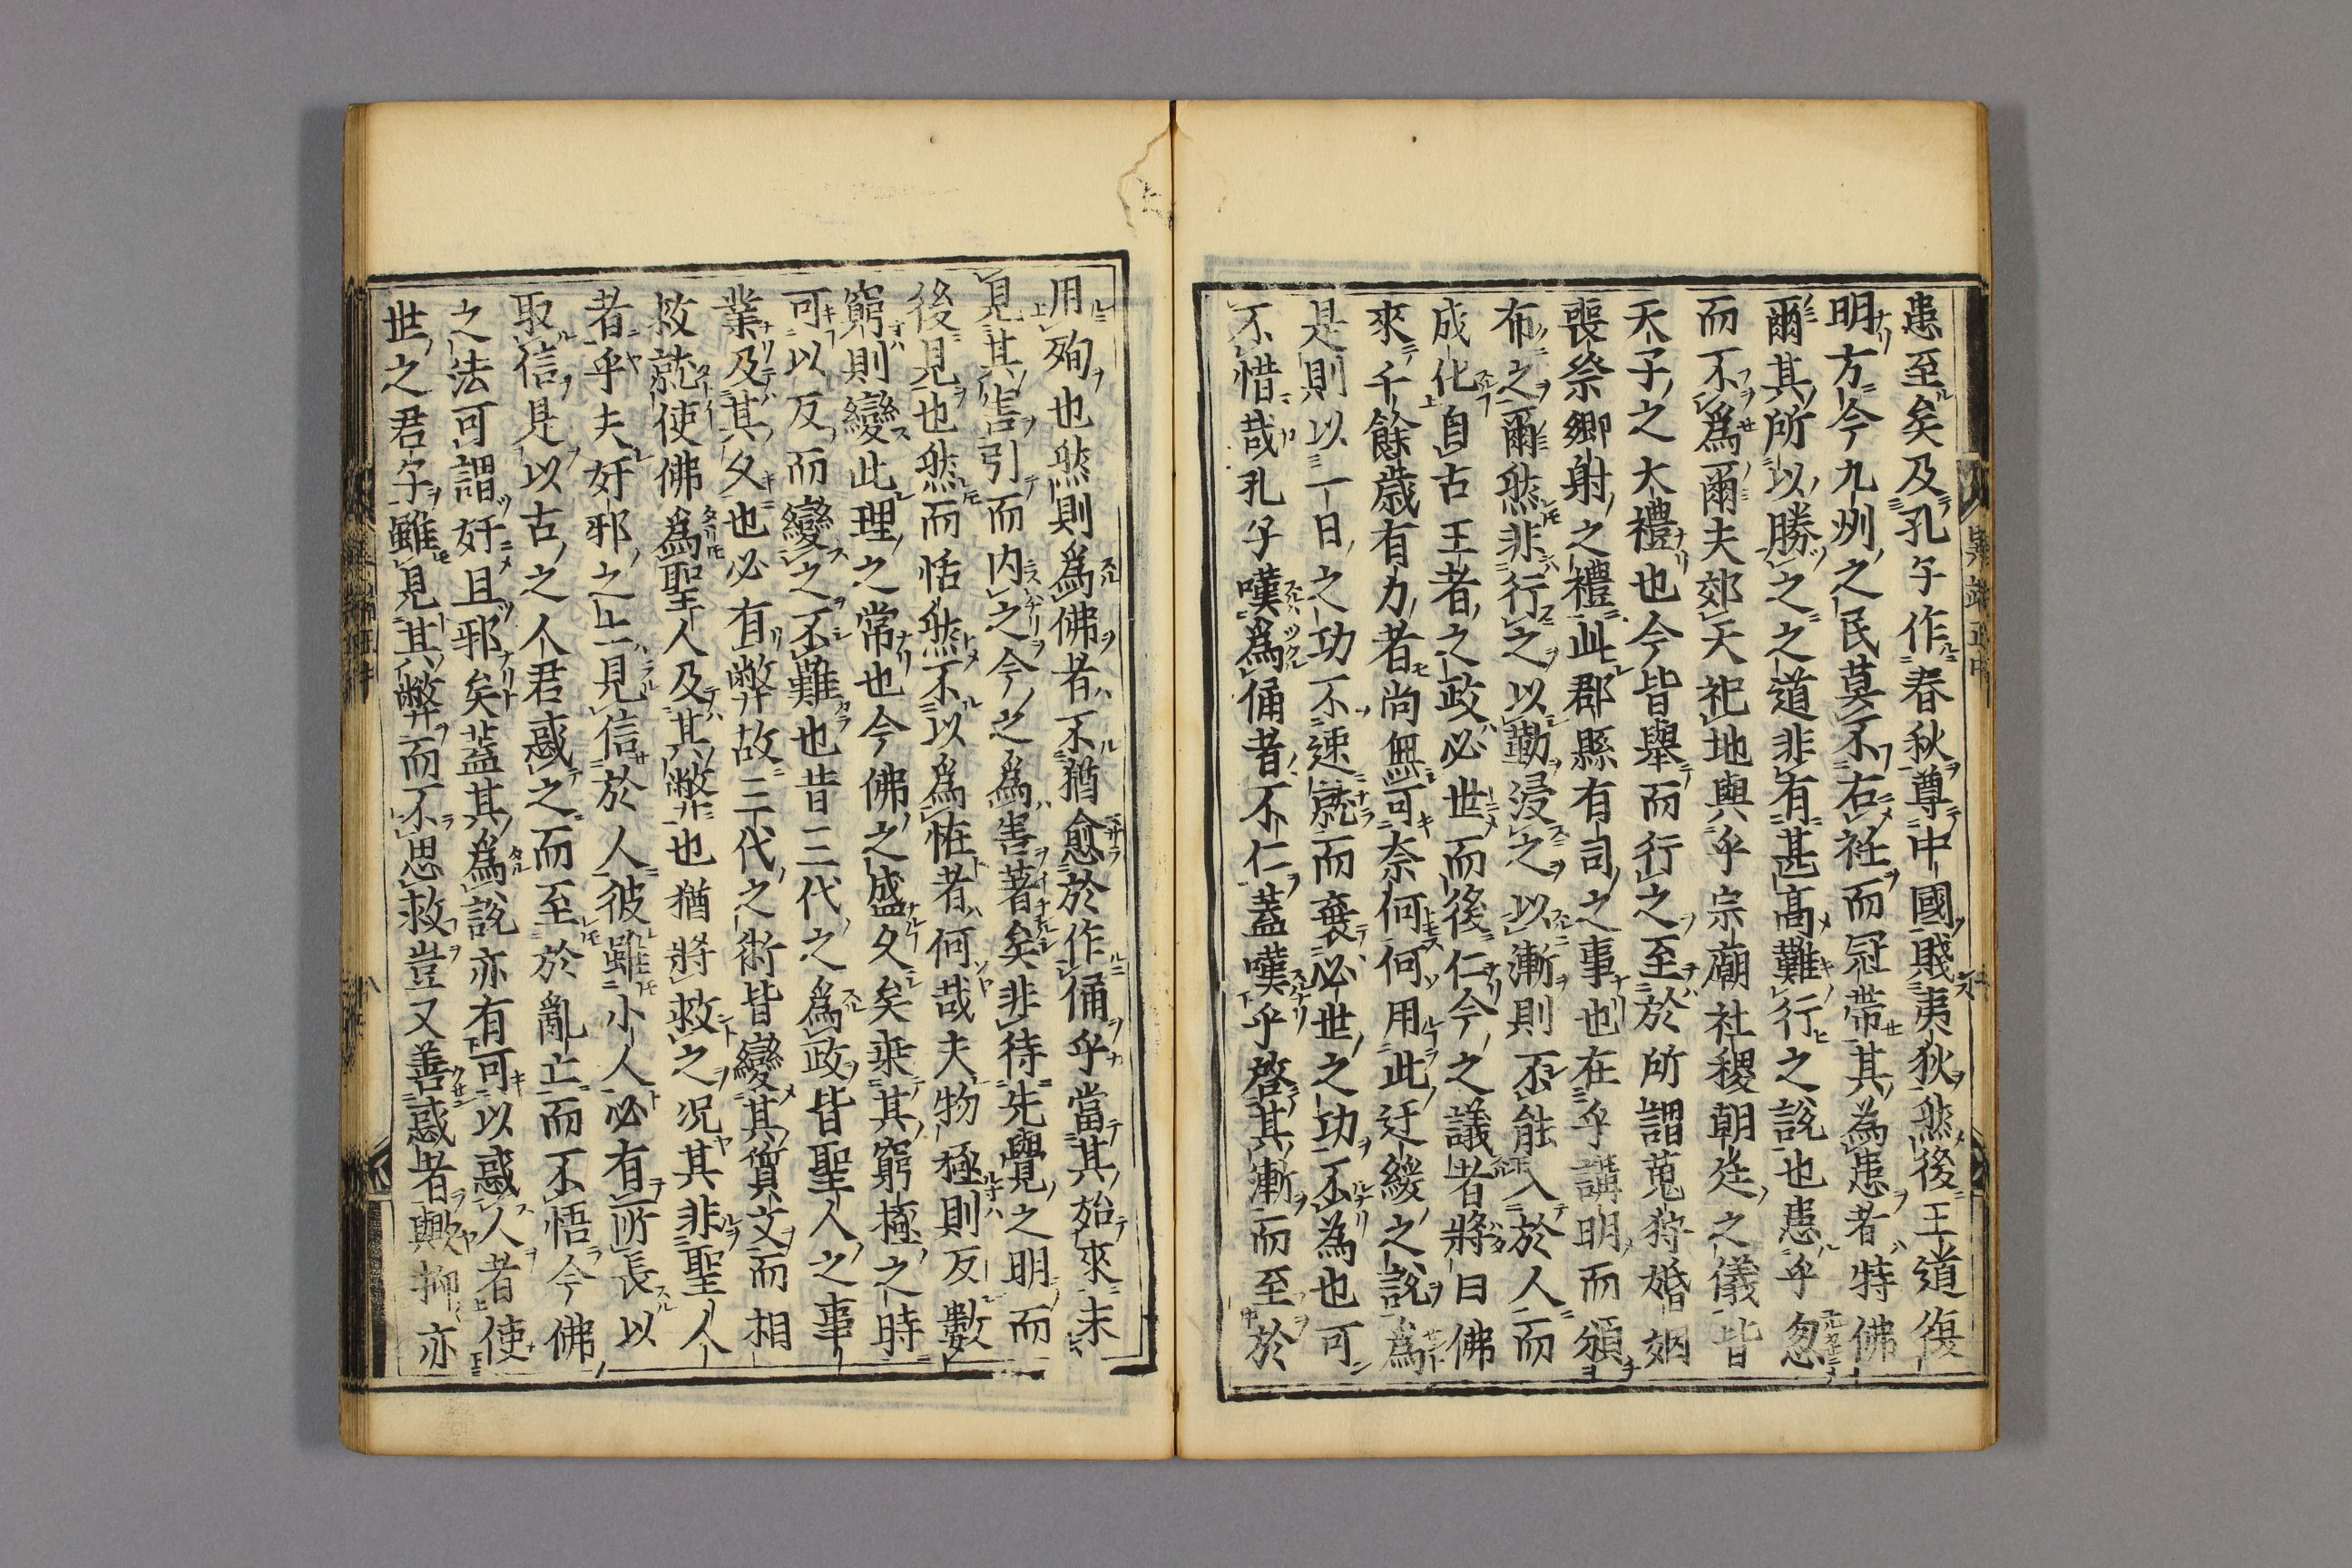 患至矣及孔子作春秋尊中國賤夷狄然後王道復
明方今九州之民莫不右衽而冠帶其為患者特佛
爾其所以勝之之道非有甚高難行之說也患乎忽
而不爲爾夫郊天祀地與乎宗廟社稷朝廷之儀皆
天子之大禮也今皆舉而行之至於所謂蒐狩婚姻
喪祭鄉射之禮此郡縣有司之事也在乎講明而頒
布之爾然非行之以勤浸之以漸則不能入於人而
成化自古王者之政必世而後仁今之議者將曰佛
來千餘歲有力者尚無可奈何何用此迂緩之說爲
是則以一日之功不速就而棄必世之功不為也可
不惜哉孔子嘆爲俑者不仁蓋嘆乎啓其漸而至於
用殉也然則爲佛者不猶愈於作俑乎當其始來未
見其害引而内之今之爲害著矣非待先覺之明而
後見也然而恬然不以爲恠者何哉夫物極則反數
窮則變此理之常也今佛之盛久矣乗其窮極之時
可以反而變之不難也昔三代之爲政皆聖人之事
業及其久也必有弊故三代之術皆變其質文而相
救就使佛爲聖人及其弊也猶將救之况其非聖人
者乎夫奸邪之士見信於人彼雖小人必有所長以
取信是以古之人君惑之而至於亂亡而不悟今佛
之法可謂奸且邪矣蓋其爲說亦有可以惑人者使
世之君子雖見其弊而不思救豈又善惑者歟抑亦